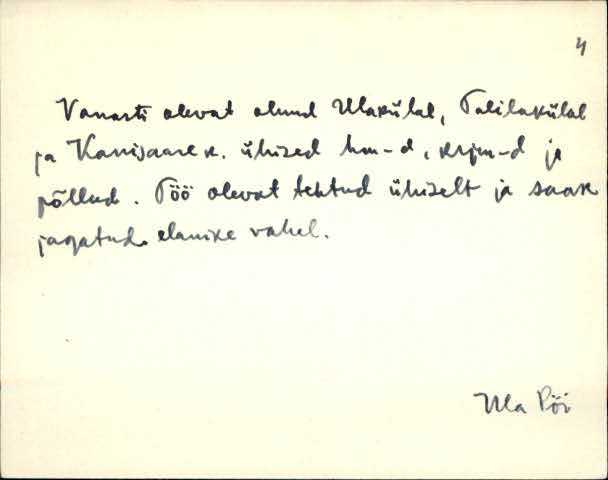 4
Vanasti olevat olnud Ulakülal, Talilakülal
ja Kanisaare k. ühised hm-d, krjm-d ja
põllud. Töö olevat tehtud ühiselt ja saak
jagatud elanike vahel.
Ula Pöi